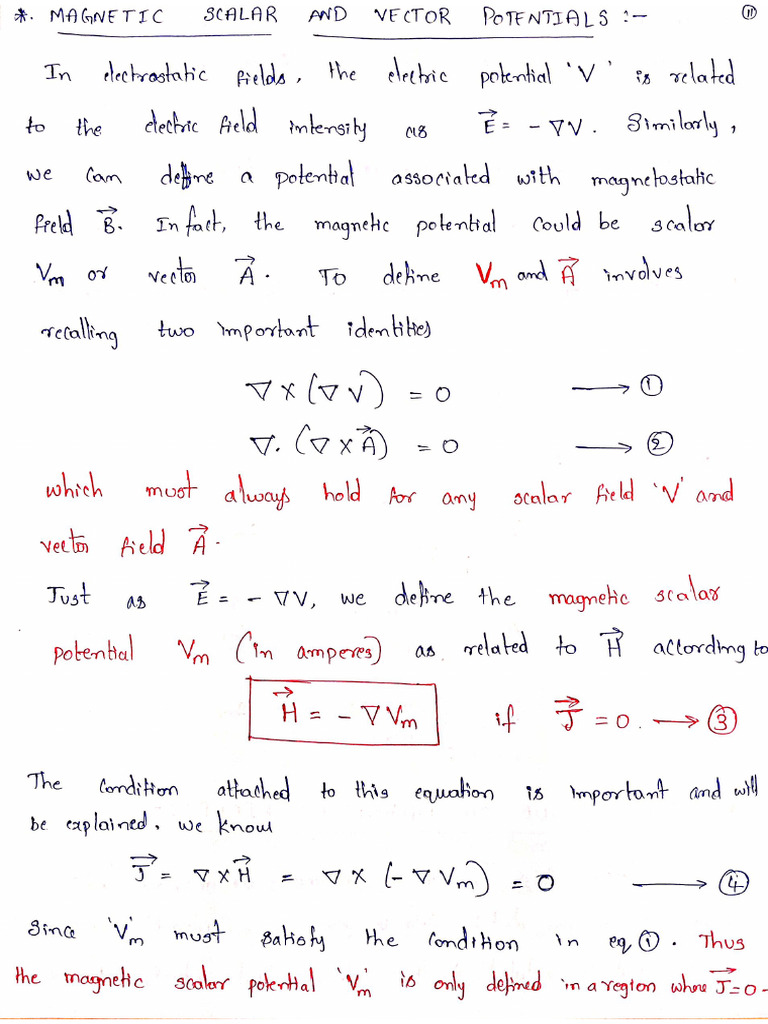 *. MAGNETIC SCALAR AND VECTOR POTENTIALS :- ⑪
In electrostatic fields, the electric potential 'V' is related
to the electric field intensity as E⃗ = - ∇V. Similarly,
we can define a potential associated with magnetostatic
field B⃗. In fact, the magnetic potential could be scalar
Vm or vector A⃗. To define Vm and A⃗ involves
recalling two important identities
∇ × (∇ V) = 0 ⟶ ①
∇. (∇ × A⃗) = 0 ⟶ ②
which must always hold for any scalar field 'V' and
vector field A⃗.
Just as E⃗ = - ∇V, we define the magnetic scalar
potential Vm (in amperes) as related to H⃗ according to
H⃗ = - ∇ Vm if J⃗ = 0. ⟶ ③
The condition attached to this equation is important and will
be explained. we know
J⃗ = ∇ × H⃗ = ∇ × (- ∇ Vm) = 0 ⟶ ④
Since 'Vm' must satisfy the condition in eq ①. Thus
the magnetic scalar potential 'Vm' is only defined in a region where J⃗=0.